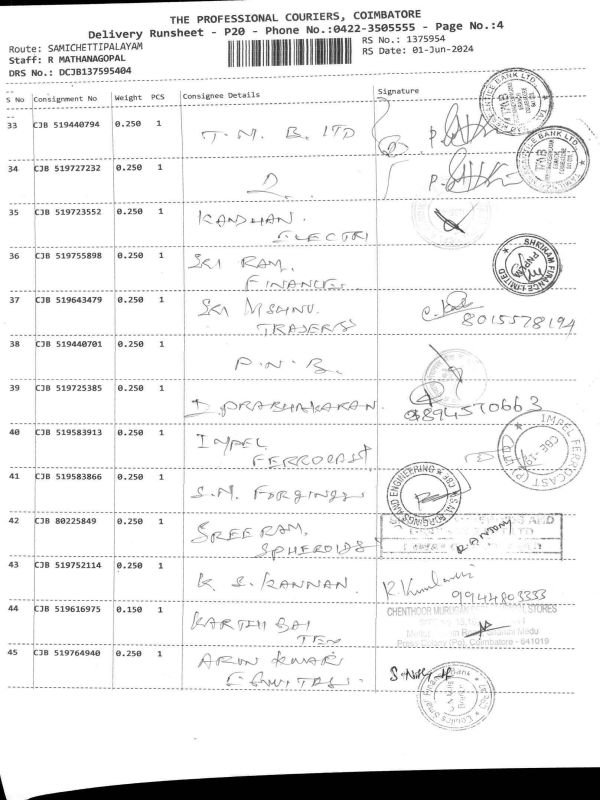 THE PROFESSIONAL COURIERS, COIMBATORE
Delivery Runsheet - P20 - Phone No.:0422-3505555 - Page No.:4
Route: SAMICHETTIPALAYAM
RS No.: 1375954
Staff: R MATHANAGOPAL
RS Date: 01-Jun-2024
DRS No.: DCJB137595404
S No Consignment No Weight PCS Consignee Details Signature
33 CJB 519440794 0.250 1 T.M.B. LTD
34 CJB 519727232 0.250 1
35 CJB 519723552 0.250 1 KANDHAN.
ELECTRI
36 CJB 519755898 0.250 1 SRI RAM.
FINANCE
SHRIRAM FINANCE LIMITED
37 CJB 519643479 0.250 1 SRI VISHNU.
TRADERS
8015578194
38 CJB 519440701 0.250 1 P.N.B.
39 CJB 519725385 0.250 1 PRABHAKARAN.
9894570663
40 CJB 519583913 0.250 1 IMPEL
FERROCAST
IMPEL FERROCAST (P) LTD
41 CJB 519583866 0.250 1 S.M. FORGINGS
S.M. FORGINGS AND ENGINEERING
42 CJB 80225849 0.250 1 SREERAM.
SPHEROIDS
43 CJB 519752114 0.250 1 K S. KANNAN.
9944803333
44 CJB 519616975 0.150 1 KARTHI SAI
TEX
CHENTHOOR MURUGAN STORES
Coimbatore - 641019
45 CJB 519764940 0.250 1 ARUN KUMAR